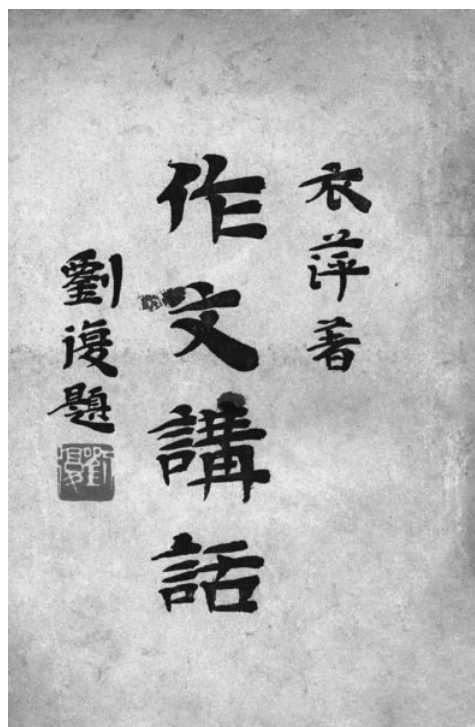 衣萍著
作文講話
劉復題
劉復